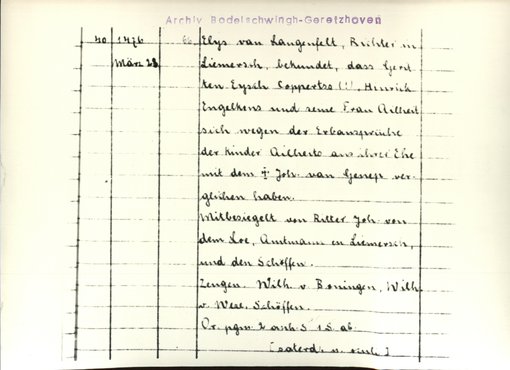 Archiv Bodelschwingh-Geretzhoven
40 1476 66. Elys van Langenfelt, Richter in
März 28 Liemersch, bekundet, dass Gerit
ten Eysch Coppertss (!), Hinrich
Engelkens und seine Frau Ailheit
sich wegen der Erbansprüche
der Kinder Ailheits aus ihrer Ehe
mit dem † Joh. van Gennep ver-
glichen haben.
Mitbesiegelt von Ritter Joh. von
dem Loe, Amtmann in Liemersch,
und den Schöffen.
Zeugen. Wilh. v. Boningen, Wilh.
v. Wese, Schöffen.
Or. pgm. 2 anh. S. 1 S. ab.
[saterd. n.]